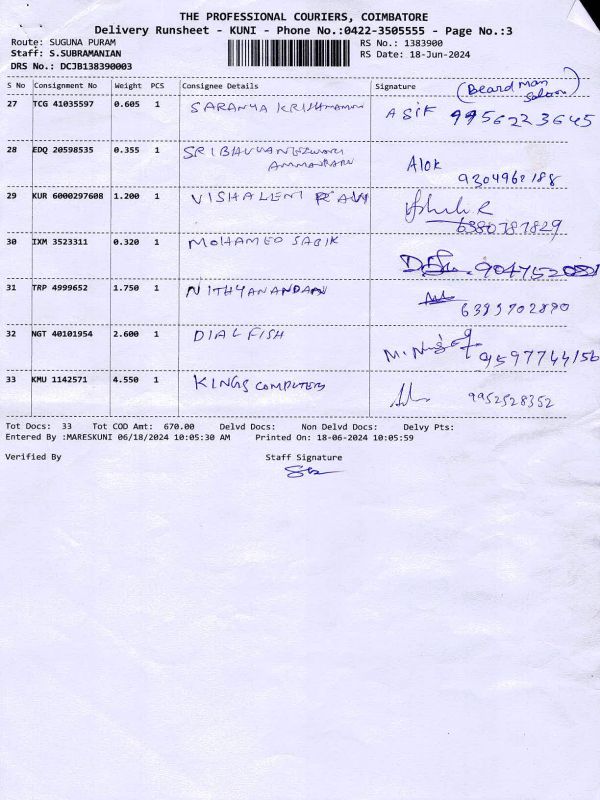 THE PROFESSIONAL COURIERS, COIMBATORE
Delivery Runsheet - KUNI - Phone No.:0422-3505555 - Page No.:3
Route: SUGUNA PURAM RS No.: 1383900
Staff: S.SUBRAMANIAN RS Date: 18-Jun-2024
DRS No.: DCJB138390003
S No Consignment No Weight PCS Consignee Details Signature (Beard Man
Saloon)
27 TCG 41035597 0.605 1 SARANYA ASIK 9956223645
28 EDQ 20598535 0.355 1 Alok
9304962188
29 KUR 6000297608 1.200 1 VISHAL
6380787829
30 IXM 3523311 0.320 1 MOHAMED SADIK
31 TRP 4999652 1.750 1 NITHYANANDAN
32 NGT 40101954 2.600 1 DIAL FISH M.
9597744156
33 KMU 1142571 4.550 1 KINGS COMPUTERS 9952528352
Tot Docs: 33 Tot COD Amt: 670.00 Delvd Docs: Non Delvd Docs: Delvy Pts:
Entered By :MARESKUNI 06/18/2024 10:05:30 AM Printed On: 18-06-2024 10:05:59
Verified By Staff Signature